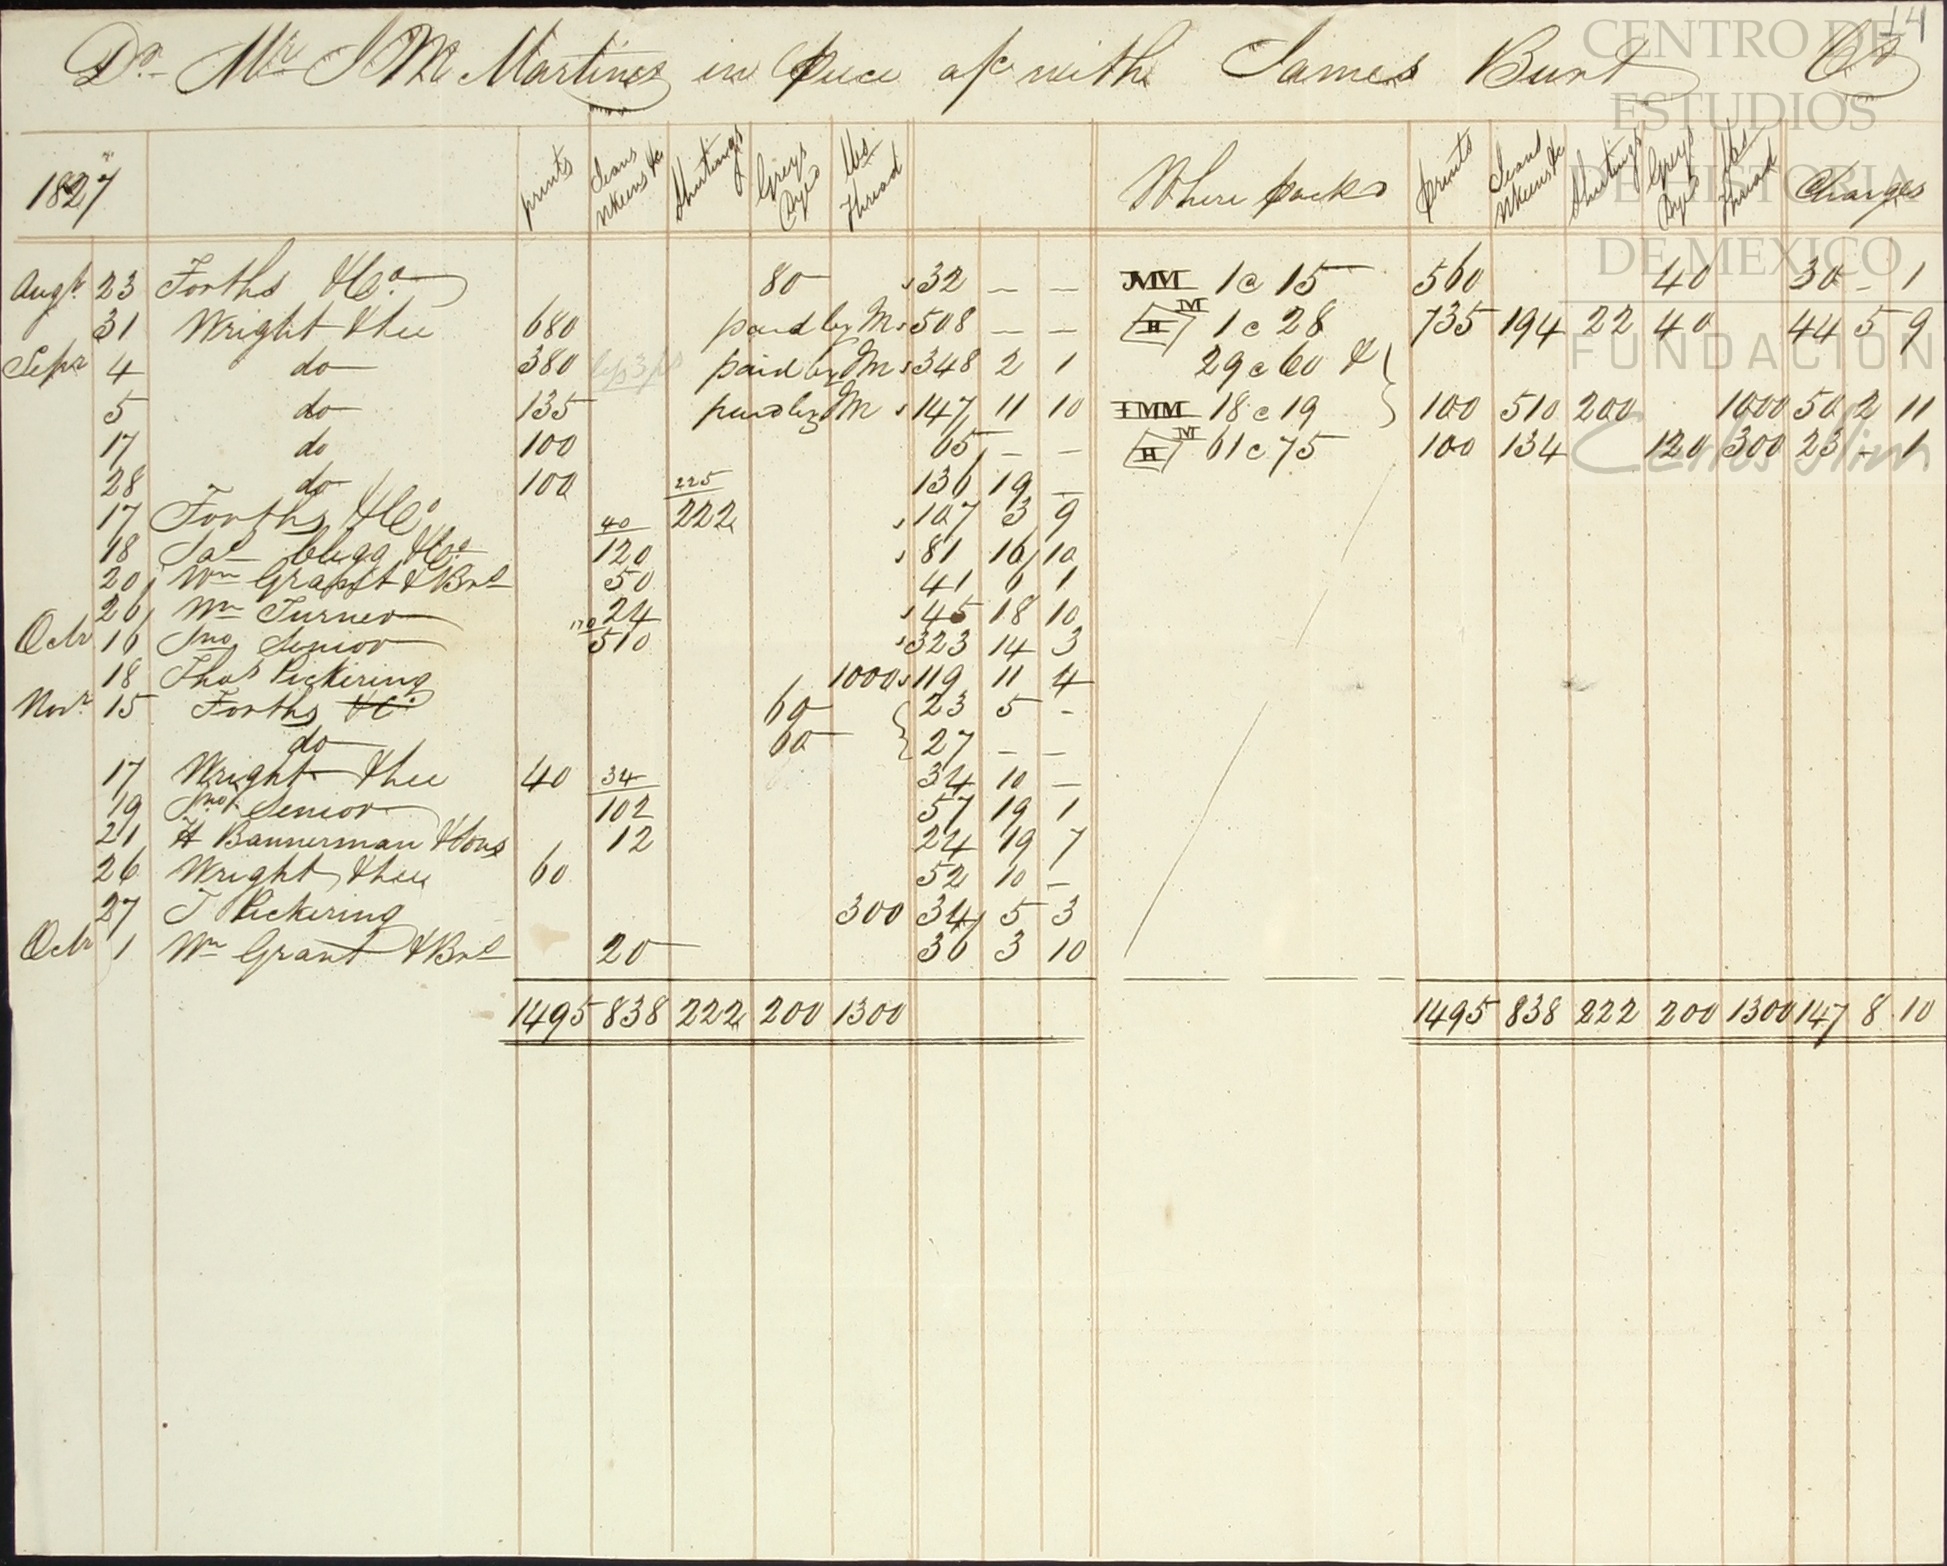 14
Dr. Mr J M Martinez in piece a/c with James Burt Cr
1827 prints Jeans Nkeens &c Shirtings Greys Dyed lbs Thread Where packd prints Jeans Nkeens &c Shirtings Greys Dyed lbs Thread Charges
Augt. 23 Forths & Co. 80 32 — — JMM 1 a 15 560 40 30 - 1
31 Wright & Lee 680 paid by M 508 — — H M 1 a 28 735 194 22 40 44 5 9
Sepr 4 do 380 paid by M 348 2 1 29 a 60 &
5 do 135 paid by M 147 11 10 JMM 18 a 19 100 510 200 1000 50 2 11
17 do 100 65 — — H M 61 a 75 100 134 120 300 23 - 1
28 do 100 225 136 19 —
17 Forths & Co 40 222 107 3 9
18 Jas Clegg & Co. 120 81 16 10
20 Wm Grant & Bros 50 41 6 1
26 Wm Turner 24 45 18 10
Octr 16 Jno Senior 170 510 323 14 3
18 Thos Pickering 1000 119 11 4
Novr. 15 Forths & Co. 60 23 5 -
do 60 27 — —
17 Wright & Lee 40 34 34 10 —
19 Jno. Senior 102 57 19 1
21 H Bannerman & Sons 12 24 19 7
26 Wright & Lee 60 52 10 —
27 T Pickering 300 34 5 3
Octr 1 Wm Grant & Bros 20 36 3 10
1495 838 222 200 1300 1495 838 222 200 1300 147 8 10
CENTRO DE
ESTUDIOS
DE HISTORIA
DE MEXICO
FUNDACIÓN
Carlos Slim